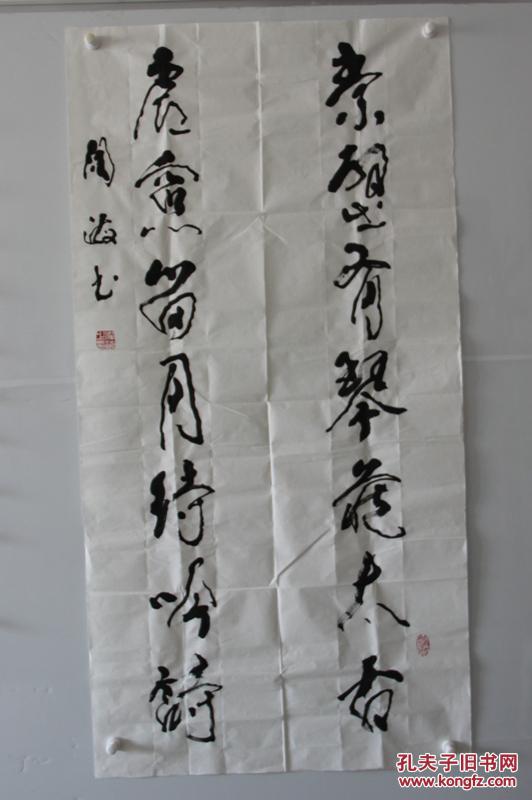 素壁有琴藏太古
虚窗留月待吟詩
周 书
孔夫子旧书网
www.kongfz.com